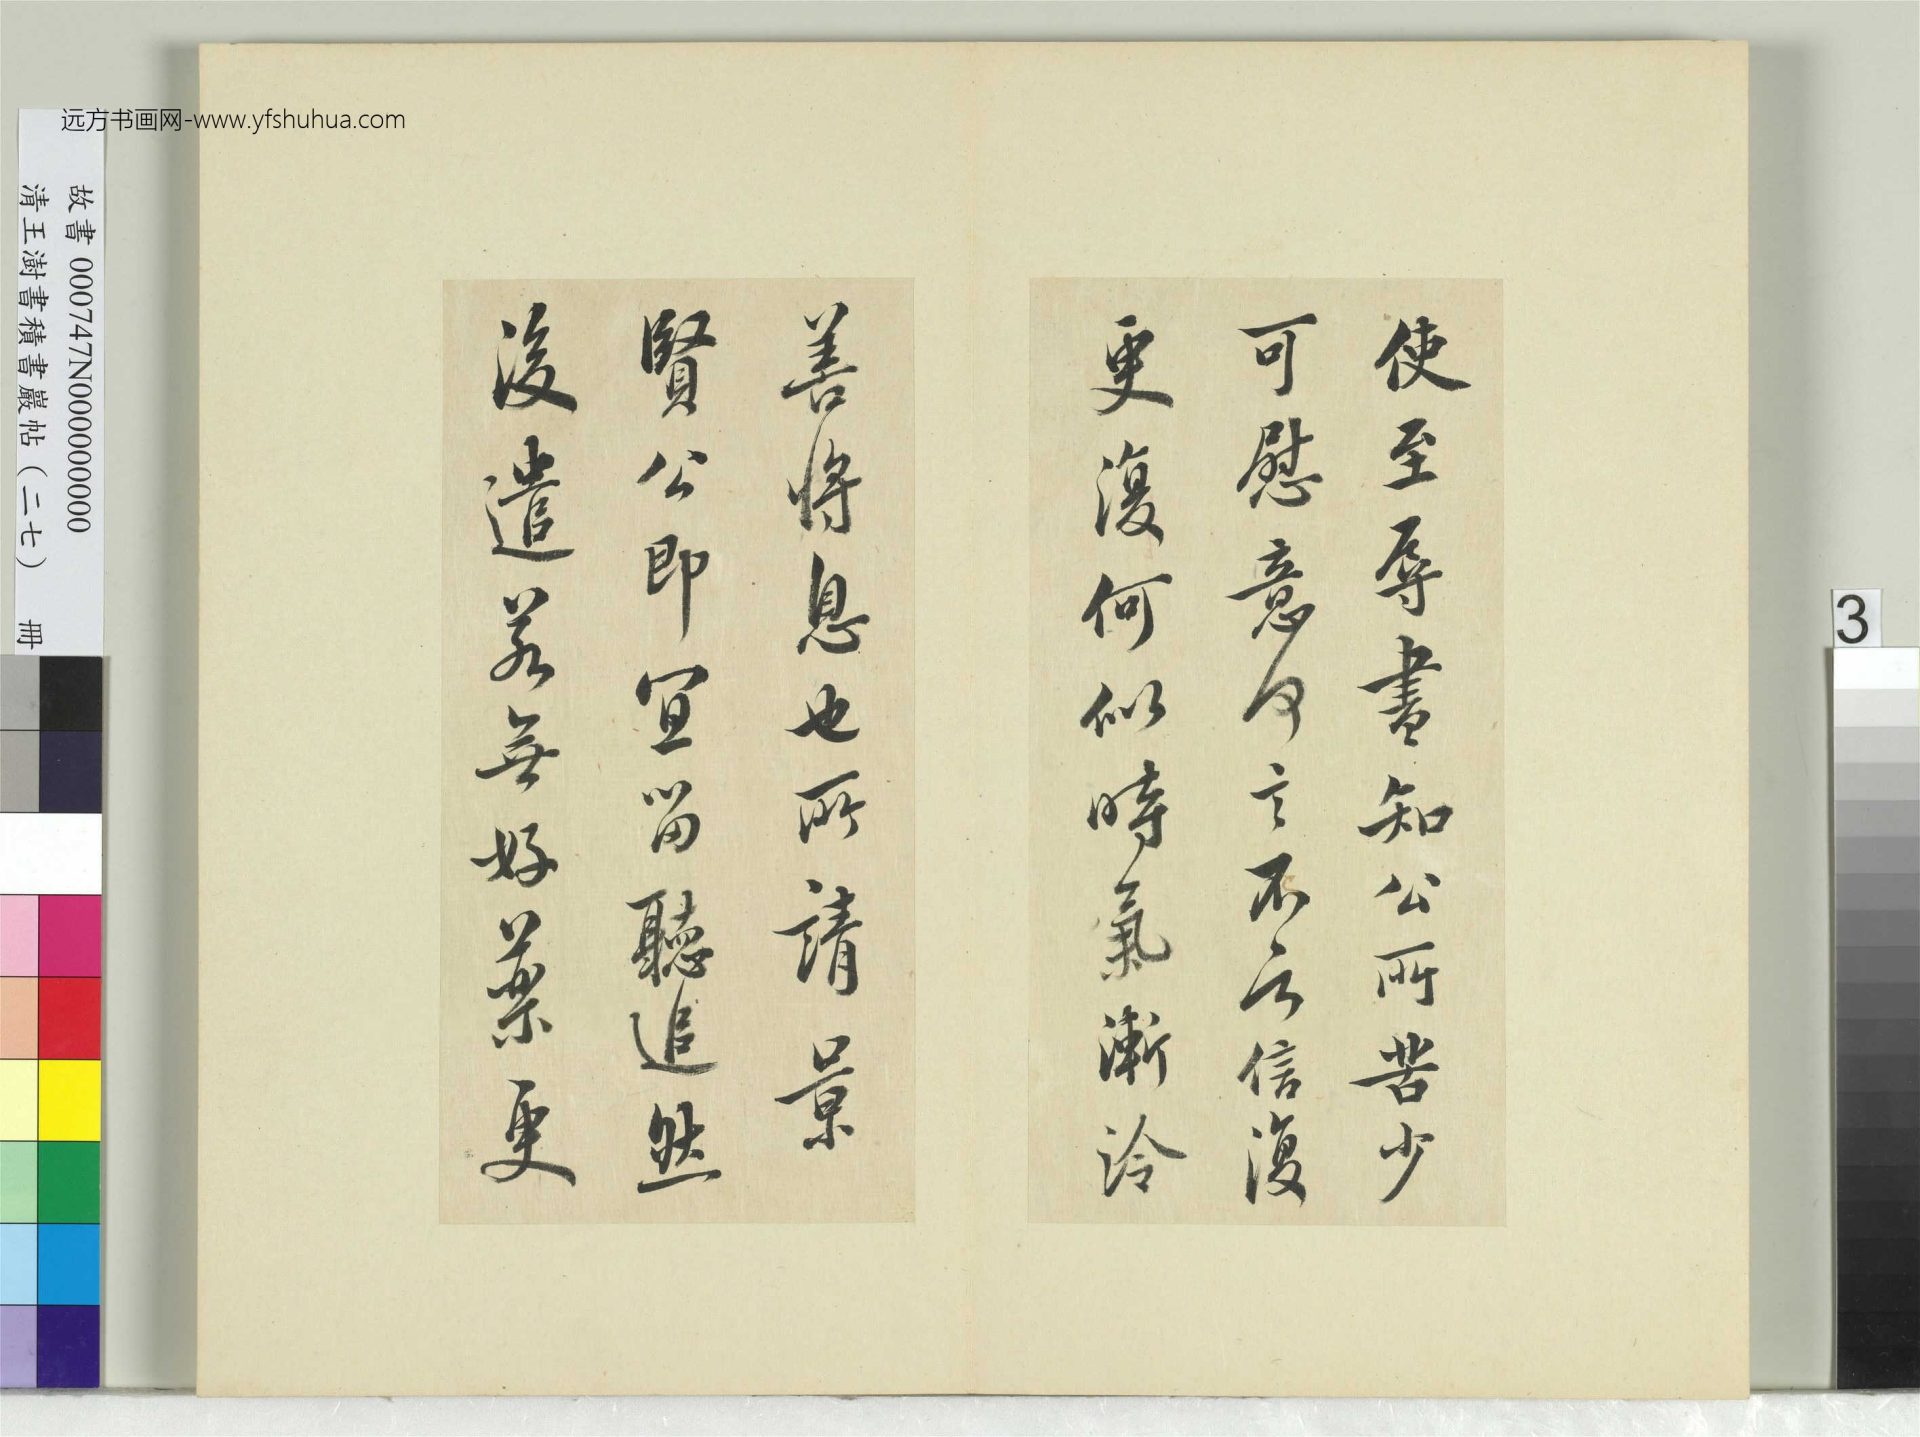 使至辱書知公所苦少
可慰意何言不次信復
更復何似時氣漸冷
善將息也所請景
賢公即宜留聽追然
後遣若無好藥更
远方书画网-www.yfshuhua.com
故書 000747N000000000
清王澍書積書巖帖（二七） 冊
3